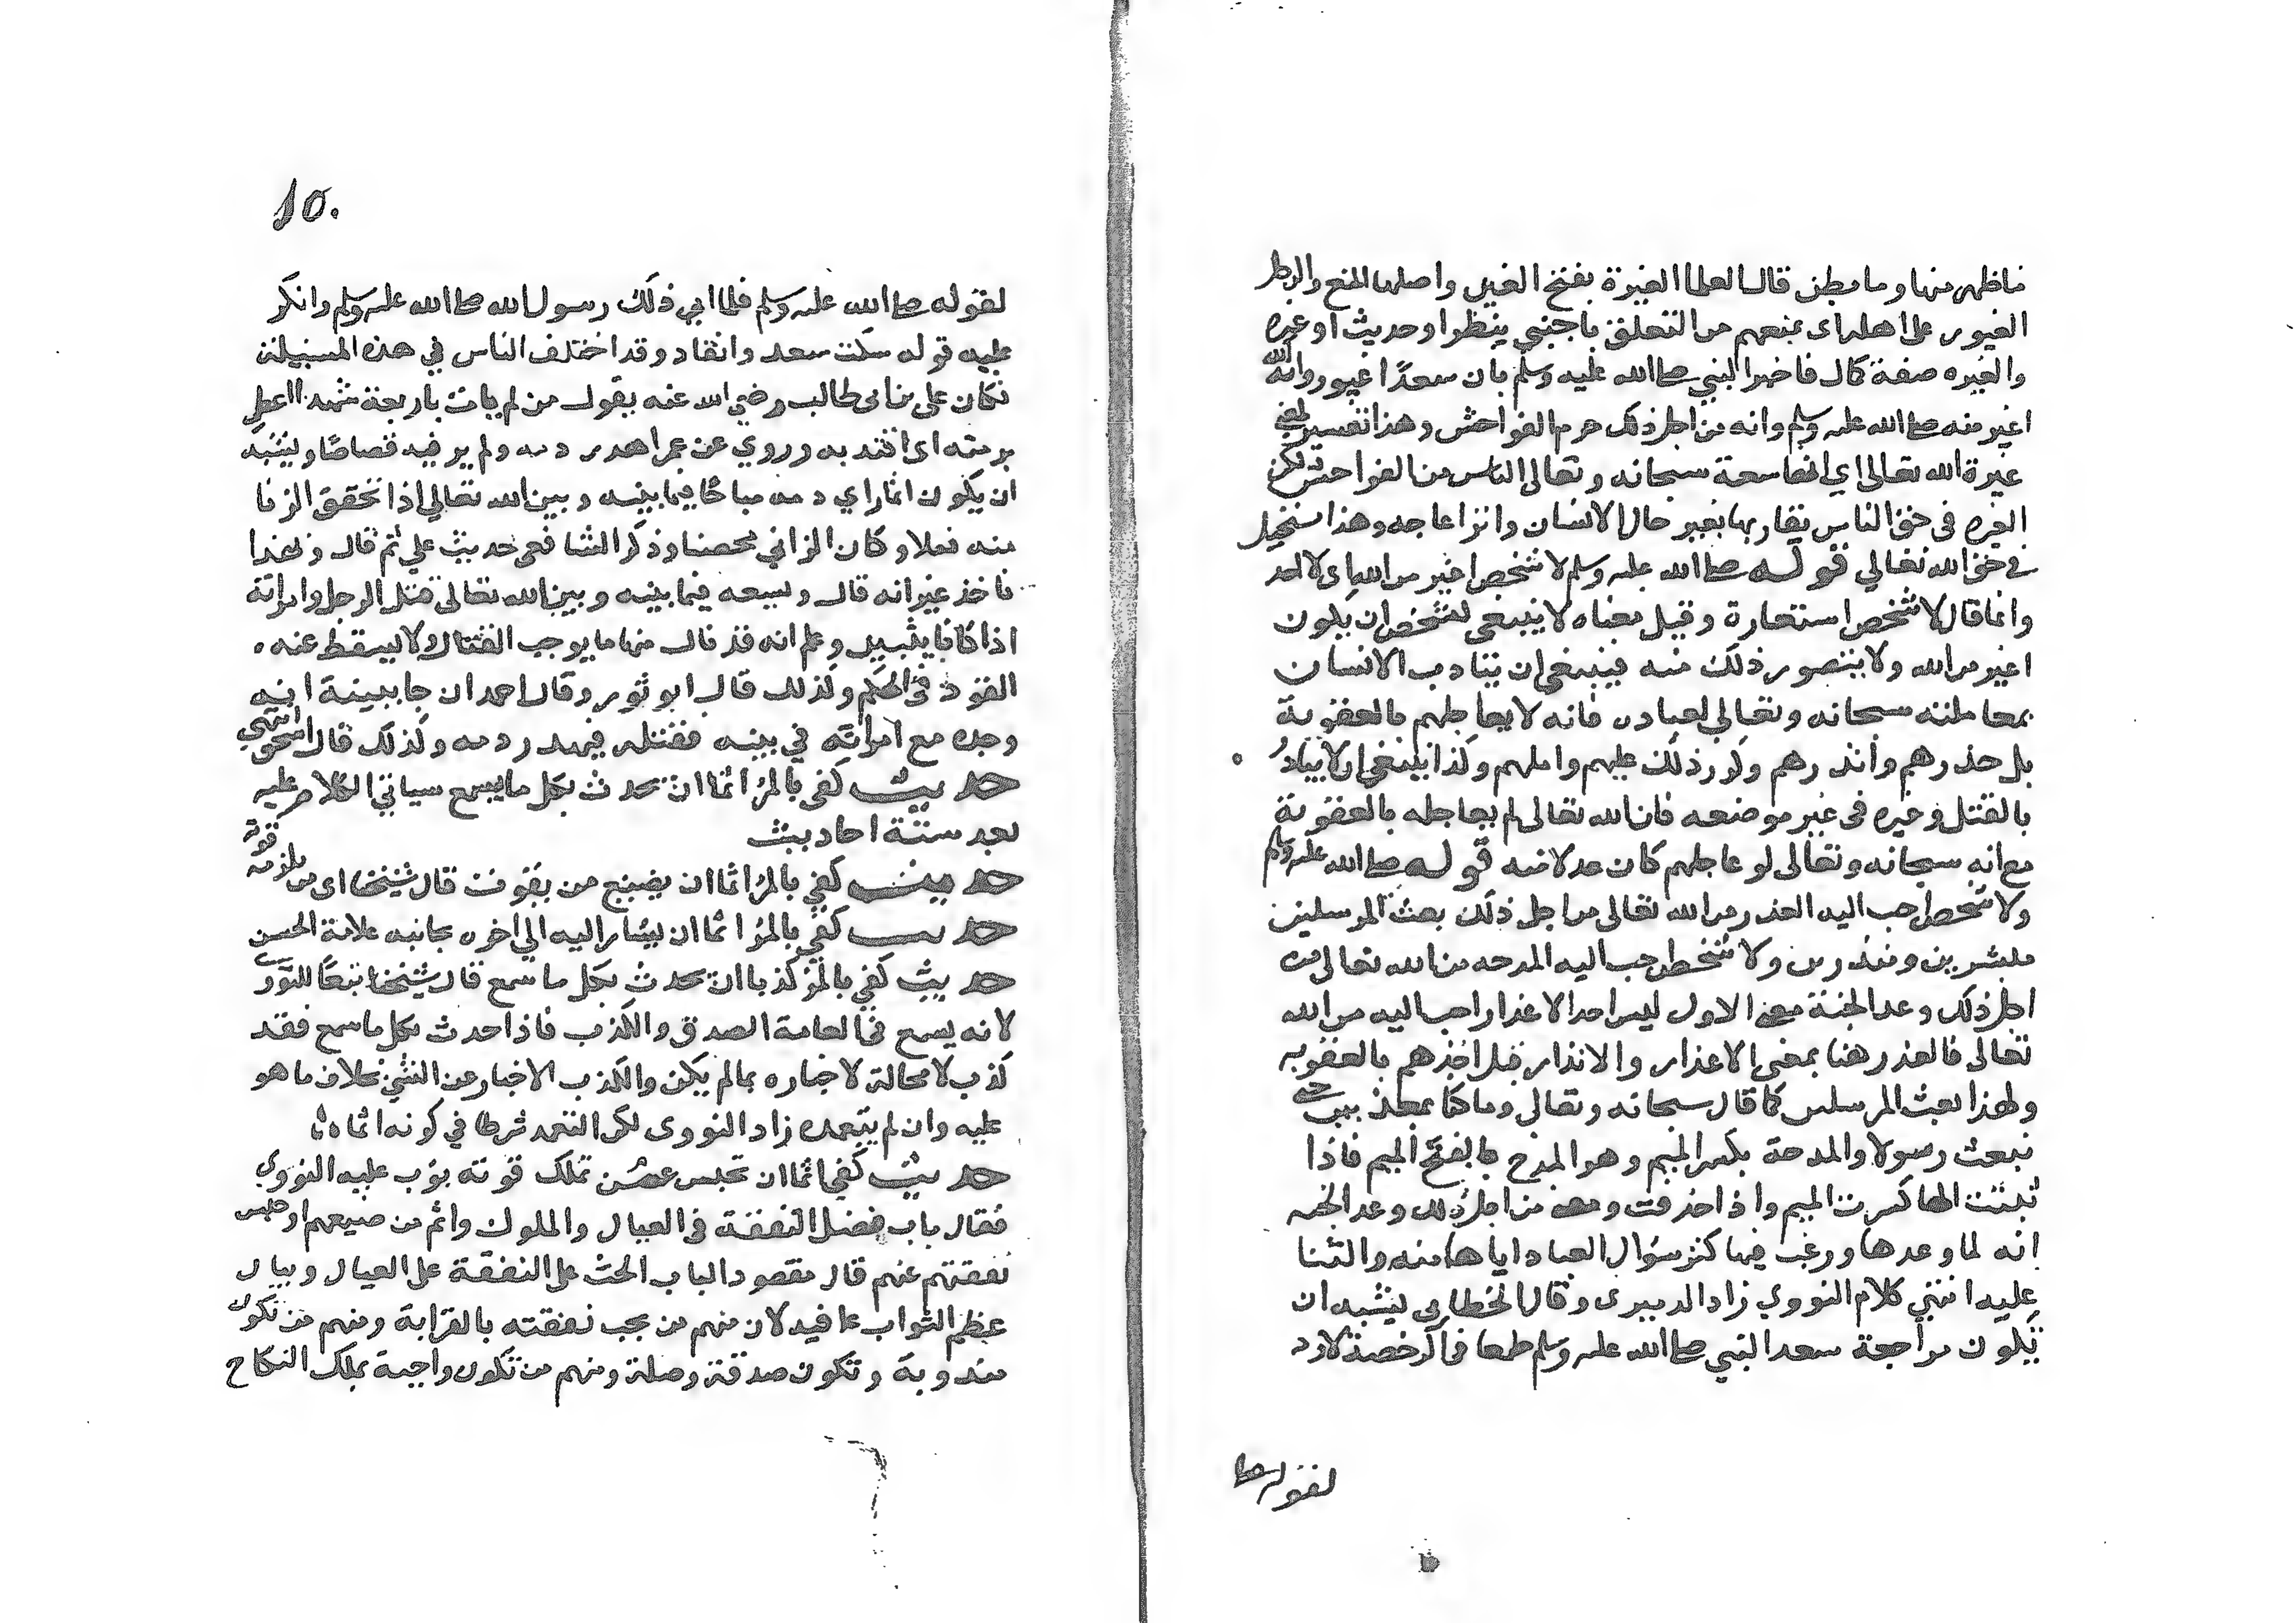 ماظهر منها وما بطن قال العلما الغيرة بفتح الغين واصلها المنع والرجل
الغيور على اهله اى يمنعهم من التعلق باجنبي بنظر او حديث او غيره
والغيره صفة كمال فاخبر النبي صلى الله عليه وسلم بان سعدًا غيور وان الله
اغير منه صلى الله عليه وسلم وانه من اجل ذلك حرم الفواحش وهذا تفسير لمعنى
غيرة الله تعالى اي انها منعه سبحانه وتعالى الناس من الفواحش لكن
الغيره فى حق الناس يقارنها تغير حال الانسان وانزعاجه وهذا مستحيل
في حق الله تعالي قوله صلى الله عليه وسلم لا شخص اغير من الله اى لا احد
وانما قال لا شخص استعارة وقيل معناه لا ينبغى لشخص ان يكون
اغير من الله ولا يتصور ذلك منه فينبغى ان يتادب الانسان
بمعاملته سبحانه وتعالي لعباده فانه لا يعاجلهم بالعقوبة
بل حذرهم وانذرهم وكرر ذلك عليهم وامهلهم وكذا ينبغى ان لا يبادر
بالقتل وغيره فى غير موضعه فان الله تعالى لم يعاجله بالعقوبة
مع انه سبحانه وتعالى لو عاجلهم كان عدلا منه قوله صلى الله عليه وسلم
ولا شخص احب اليه العذر من الله تعالى من اجل ذلك بعث المرسلين
مبشرين ومنذرين ولا شخص احب اليه المدحه من الله تعالى من
اجل ذلك وعد الجنة معنى الاول ليس احد الاعذار احب اليه من الله
تعالى فالعذر هنا بمعنى الاعذار والانذار قبل اخذهم بالعقوبه
ولهذا بعث المرسلين كما قال سبحانه وتعالى وما كنا معذبين حتى
نبعث رسولا والمدحة بكسر الميم وهو المدح بفتح الميم فاذا
ثبتت الها كسرت الميم واذا حذفت ومعنى من اجل ذلك وعد الجنه
انه لما وعدها ورغب فيها كثر سؤال العباد اياها منه والثنا
عليه انتهي كلام النووي زاد الدميرى وقال الخطابى يشبه ان
تكون مراجعة سعد النبي صلى الله عليه وسلم طمعا فى الرخصة لا رد
لقوله صلى
10.
لقوله صلى الله عليه وسلم فلما ابي ذلك رسول الله صلى الله عليه وسلم وانكر
عليه قوله سكت سعد وانقاد وقد اختلف الناس في هذه المسئلة
فكان على بن ابى طالب رضي الله عنه يقول من لم يات باربعة شهدا اعطي
برمته اى اقتد به وروي عن عمر اهدر دمه ولم ير فيه قصاصًا ويشبه
ان يكون انما راي دمه مباحًا فيما بينه وبين الله تعالي اذا تحقق الزنا
منه فعلا وكان الزاني محصنا وذكر الشافعى حديث علي ثم قال وبهذا
ناخذ غير انه قال ويسعه فيما بينه وبين الله تعالى قتل الرجل وامراته
اذا كانا ثيبين وعلم انه قد نال منها ما يوجب القتل ولا يسقط عنه
القود في الحكم وكذلك قال ابو ثور وقال احمد ان جا ببينة انه
وجده مع امراته في بيته فقتله فيهدر دمه وكذلك قال اسحق انتهي
حديث كفى بالمرء اثما ان يحدث بكل ما يسمع سياتي الكلام عليه
بعد ستة احاديث
حديث كفي بالمرء اثما ان يضيع من يقوت قال شيخنا اى من يلزمه قوته
حديث كفي بالمرء اثما ان يشار اليه الي اخره بجانبه علامة الحسن
حديث كفي بالمرء كذبا ان يحدث بكل ما سمع قال شيخنا تبعًا للنووى
لانه يسمع في العامة الصدق والكذب فاذا حدث بكل ما سمع فقد
كذب لا محالة لاخباره بما لم يكن والكذب الاخبار عن الشئ بخلاف ما هو
عليه وان لم يتعمده زاد النووى لكن التعمد شرط في كونه اثما
حديث كفي اثما ان تحبس عمن تملك قوته بوب عليه النووي
فقال باب فضل النفقة فى العيال والمملوك واثم من ضيعهم او حبس
نفقتهم عنهم قال مقصود الباب الحث على النفقة على العيال وبيان
عظيم الثواب عما فيه لان منهم من يجب نفقته بالقرابة ومنهم من تكون
مندوبة وتكون صدقة وصلة ومنهم من تكون واجبة بملك النكاح